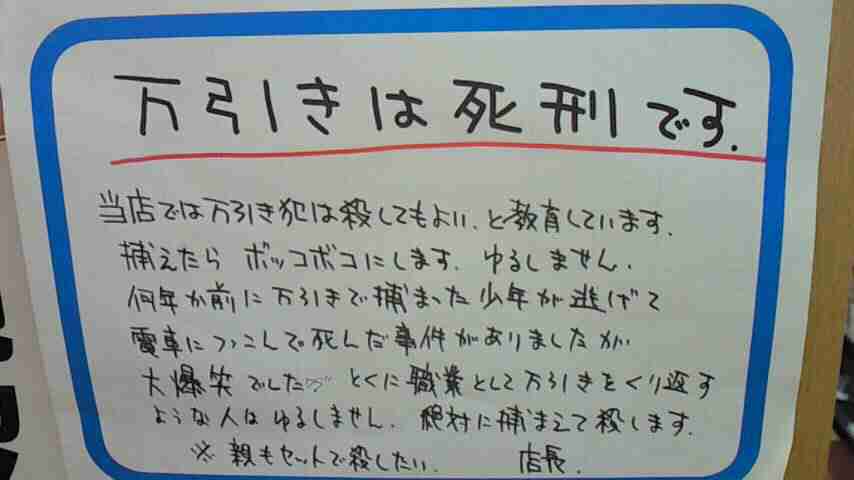 万引きは死刑です.
当店では万引き犯は殺してもよい、と教育しています.
捕えたら ボッコボコにします. ゆるしません.
何年か前に万引きで捕まった少年が逃げて
電車につっこんで死んだ事件がありましたが
大爆笑でした とくに職業として万引きをくり返す
ような人はゆるしません. 絶対に捕まえて殺します.
※ 親もセットで殺したい. 店長.